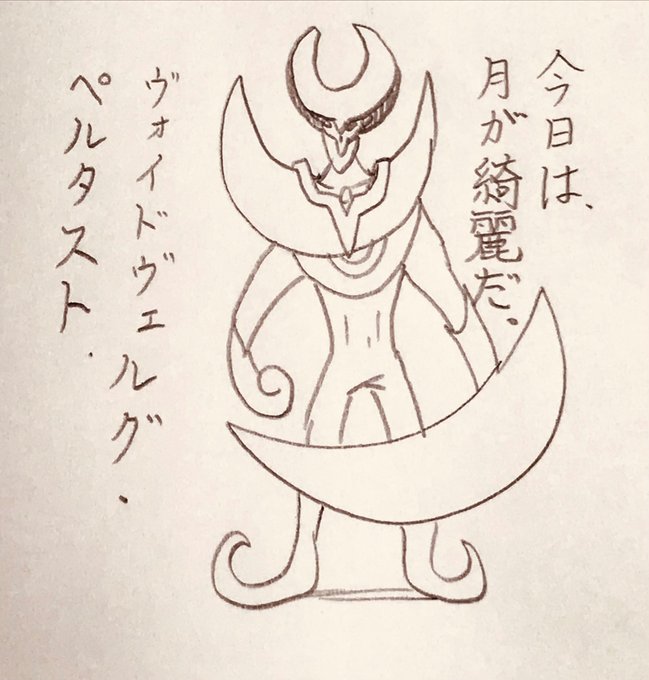 今日は、
月が綺麗だ.
ヴォイドヴェルグ.
ペルタスト.